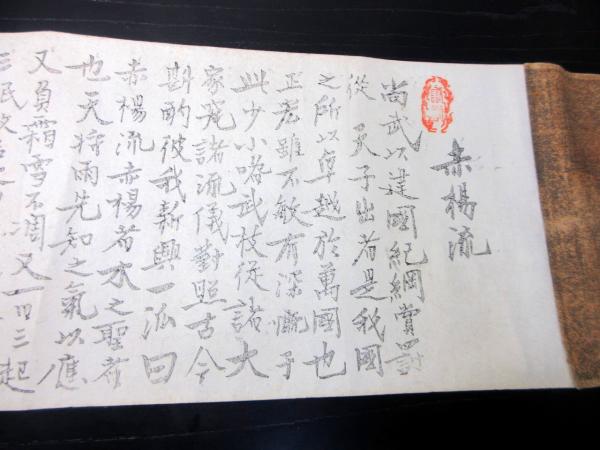 赤楊流
尚武以建國紀綱賞罰
從天子出者是我國
之所以卓越於萬國也
正老雖不敏有深慨于
此少小嗜武技從諸大
家究諸流儀對照古今
斟酌彼我新興一派曰
赤楊流赤楊者木之聖者
也天將雨先知之氣以應
又負霜雪不凋又一日三起
三民